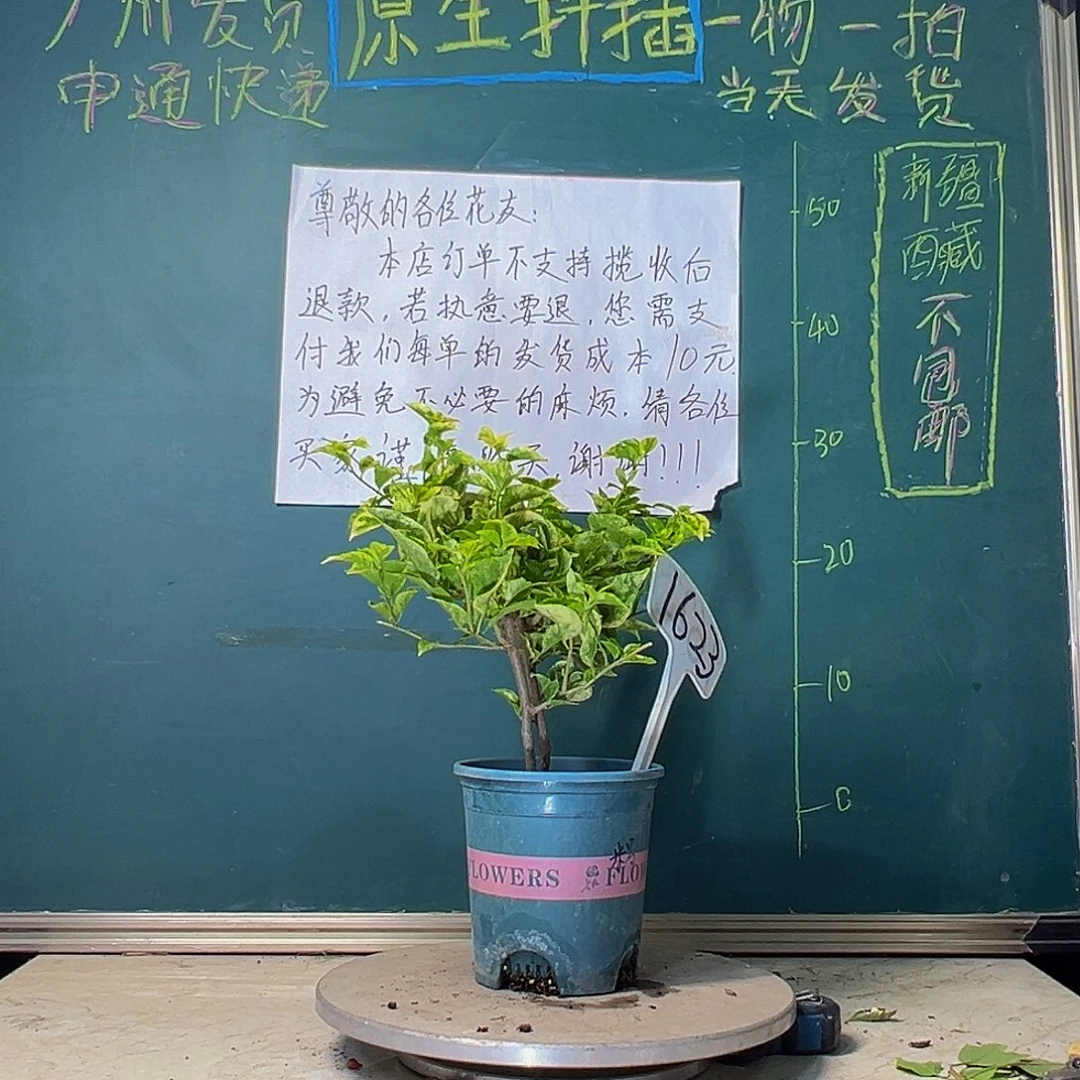 广州发货
原生扦插
一物一拍
申通快递
当天发货
尊敬的各位花友:
本店订单不支持揽收后
退款,若执意要退,您需支
付我们每单的发货成本10元
为避免不必要的麻烦.请各位
买家谨 买,谢谢!!!
50
40
30
20
10
0
新疆
西藏
不包邮
1633
FLOWERS
FLOW